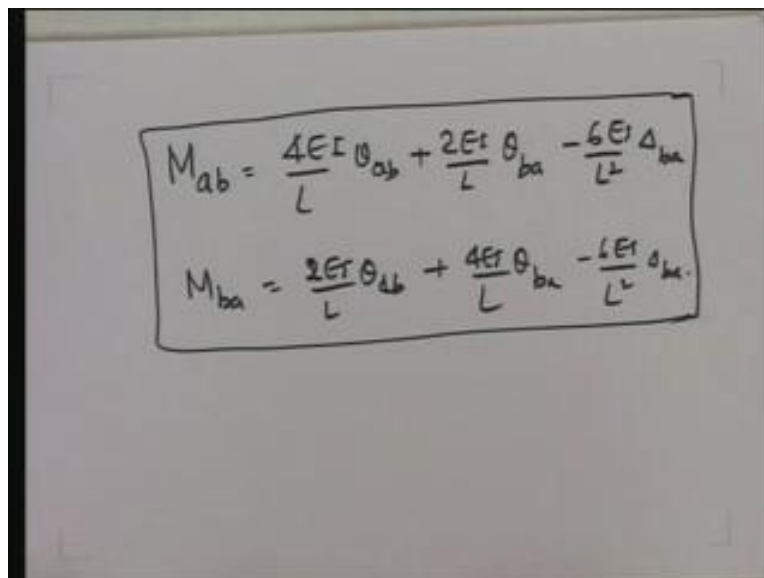 M_ab = 4EI/L θ_ab + 2EI/L θ_ba - 6EI/L² Δ_ba
M_ba = 2EI/L θ_ab + 4EI/L θ_ba - 6EI/L² Δ_ba.